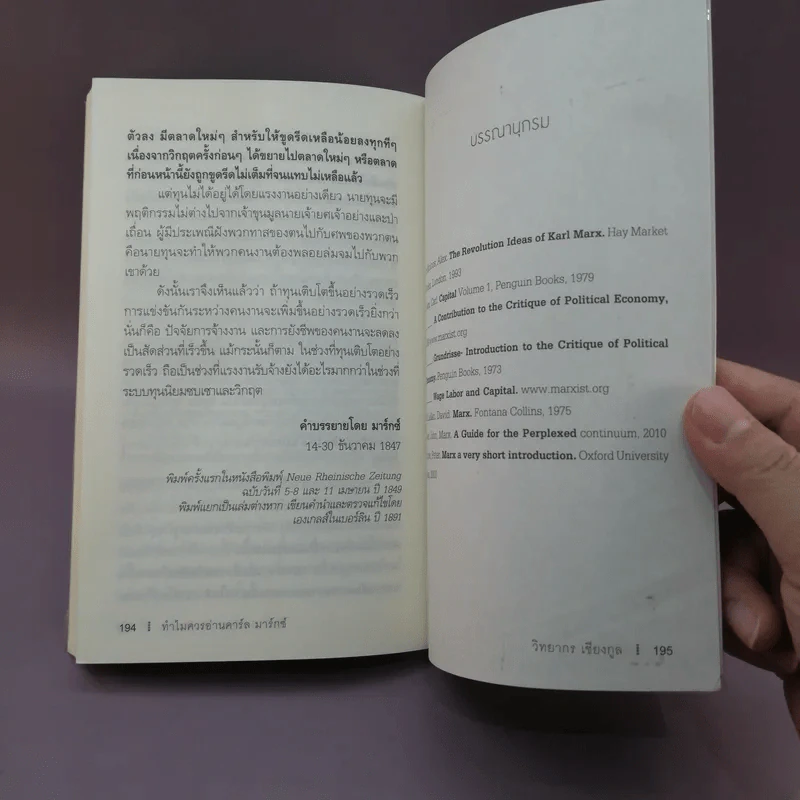 ตัวลง มีตลาดใหม่ๆ สำหรับให้ขูดรีดเหลือน้อยลงทุกทีๆ
เนื่องจากวิกฤตครั้งก่อนๆ ได้ขยายไปตลาดใหม่ๆ หรือตลาด
ที่ก่อนหน้านี้ยังถูกขูดรีดไม่เต็มที่จนแทบไม่เหลือแล้ว
แต่ทุนไม่ได้อยู่ได้โดยแรงงานอย่างเดียว นายทุนจะมี
พฤติกรรมไม่ต่างไปจากเจ้าขุนมูลนายเจ้ายศเจ้าอย่างและป่า
เถื่อน ผู้มีประเพณีฝังพวกทาสของตนไปกับศพของพวกตน
คือนายทุนจะทำให้พวกคนงานต้องพลอยล่มจมไปกับพวก
เขาด้วย
ดังนั้นเราจึงเห็นแล้วว่า ถ้าทุนเติบโตขึ้นอย่างรวดเร็ว
การแข่งขันกันระหว่างคนงานจะเพิ่มขึ้นอย่างรวดเร็วยิ่งกว่า
นั่นก็คือ ปัจจัยการจ้างงาน และการยังชีพของคนงานจะลดลง
เป็นสัดส่วนที่เร็วขึ้น แม้กระนั้นก็ตาม ในช่วงที่ทุนเติบโตอย่าง
รวดเร็ว ถือเป็นช่วงที่แรงงานรับจ้างยังได้อะไรมากกว่าในช่วงที่
ระบบทุนนิยมซบเซาและวิกฤต
คำบรรยายโดย มาร์กซ์
14-30 ธันวาคม 1847
พิมพ์ครั้งแรกในหนังสือพิมพ์ Neue Rheinische Zeitung
ฉบับวันที่ 5-8 และ 11 เมษายน ปี 1849
พิมพ์แยกเป็นเล่มต่างหาก เขียนคำนำและตรวจแก้ไขโดย
เองเกลส์ในเบอร์ลิน ปี 1891
194 ทำไมควรอ่านคาร์ล มาร์กซ์
บรรณานุกรม
Alex. The Revolution Ideas of Karl Marx. Hay Market
London, 1993
Carl. Capital Volume 1, Penguin Books, 1979
A Contribution to the Critique of Political Economy,
www.marxist.org
Grundrisse- Introduction to the Critique of Political
Penguin Books, 1973
Wage Labor and Capital. www.marxist.org
David. Marx. Fontana Collins, 1975
Marx. A Guide for the Perplexed continuum, 2010
Marx a very short introduction. Oxford University
วิทยากร เชียงกูล 195